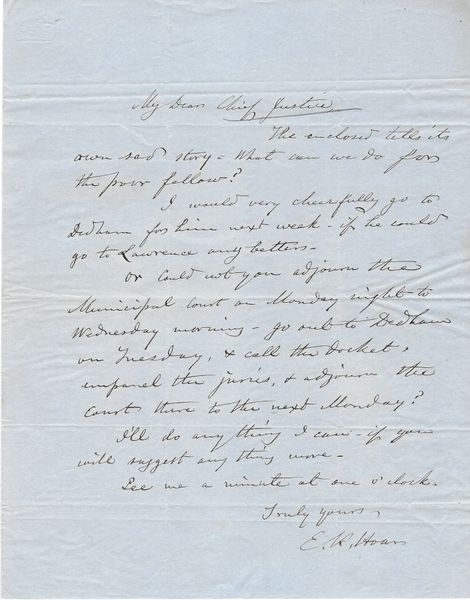 My Dear Chief Justice,
The enclosed tells its
own sad story - What can we do for
the poor fellow?
I would very cheerfully go to
Dedham for him next week - if he could
go to Lawrence any better -
Or could not you adjourn the
Municipal Court on Monday night to
Wednesday morning - go out to Dedham
on Tuesday, & call the docket,
empanel the juries, & adjourn the
Court there to the next Monday?
I'll do anything I can - if you
will suggest any thing more -
See me a minute at one o'clock.
Truly yours,
E. R. Hoar